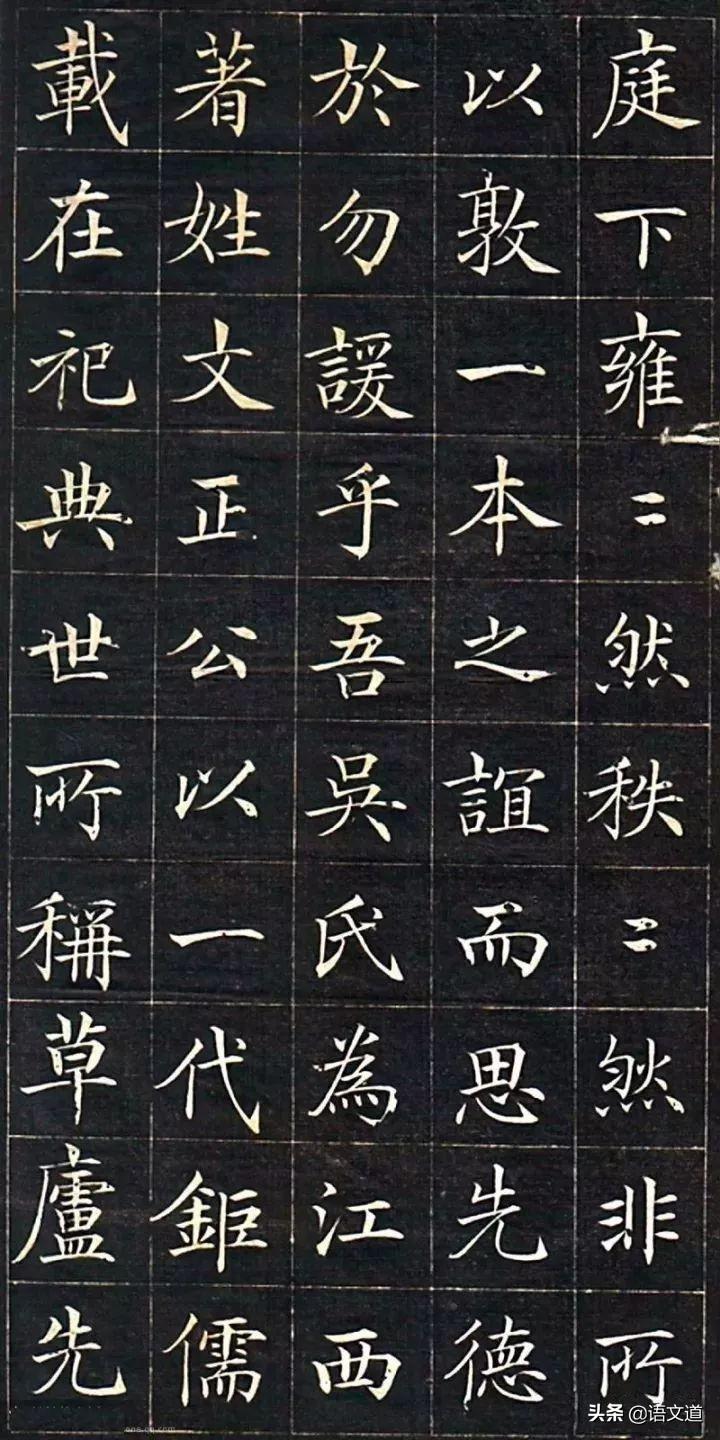 庭下雍〻然秩〻然非所
以敦一本之誼而思先德
於勿諼乎吾吳氏為江西
著姓文正公以一代鉅儒
載在祀典世所稱草廬先
头条 @语文道